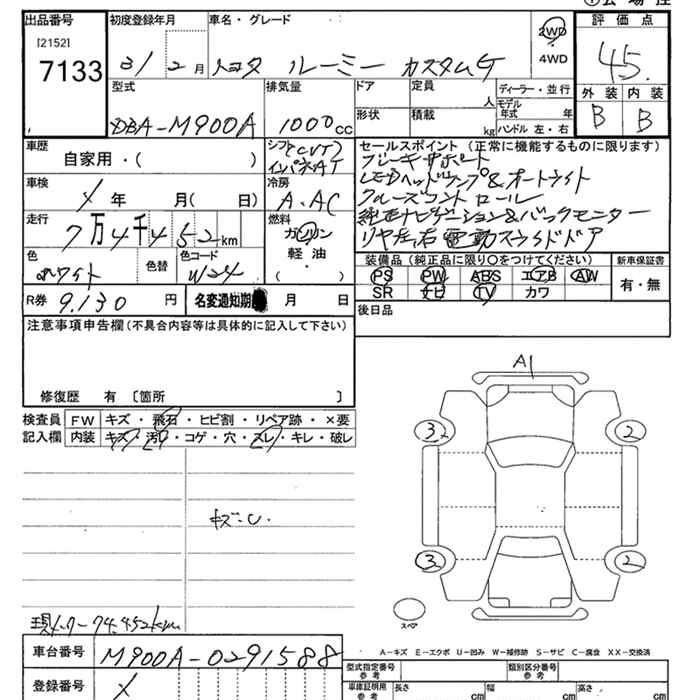 出品番号 初度登録年月 車名・グレード 評価点
[2152] 7133 31/2月 トヨタ ルーミー カスタムG 2WD 4WD 45.
型式 排気量 ドア 定員 人 ディーラー・並行 外装 内装
DBA-M900A 1000cc 形状 積載 kg モデル年式 年 ハンドル 左・右 B B
車歴 自家用・( ) シフト (CVT) インパネAT セールスポイント (正常に機能するものに限ります)
ブレーキサポート
車検 / 年 月( 日) 冷房 A・AC LEDヘッドランプ&オートライト
クルーズコントロール
走行 7万4千452km 燃料 ガソリン・軽油・( ) 純正ナビゲーション&バックモニター
リヤ左右電動スライドドア
色 ホワイト 色替 色コード W24
装備品 (純正品に限り○をつけてください) 新車保証書
PS PW ABS エアB AW 有・無
SR ナビ TV カワ
R券 9,130円 名変通知期 月 日
後日品
注意事項申告欄(不具合内容等は具体的に記入して下さい)
修復歴 有 〔箇所 〕
検査員記入欄 FW キズ・飛石・ヒビ割・リペア跡・×要
内装 キズ・汚レ・コゲ・穴・スレ・キレ・破レ
A1
3 2
キズ・U.
3 2
スペア
現メーター 74,452km
A-キズ E-エクボ U-凹み W-補修跡 S-サビ C-腐食 XX-交換済
車台番号 M900A-0291588
型式指定番号 参考 類別区分番号 参考
登録番号 /
車庫証明用 参考 長さ cm 幅 cm 高さ cm